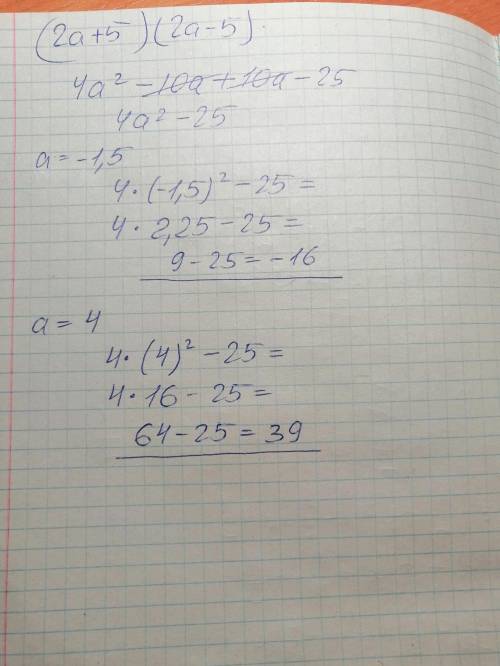 (2a+5)(2a-5).
4a² -10a+10a-25
4a² -25
a=-1,5
4·(-1,5)² -25=
4·2,25-25=
9-25=-16
a=4
4·(4)² -25=
4·16-25=
64-25=39